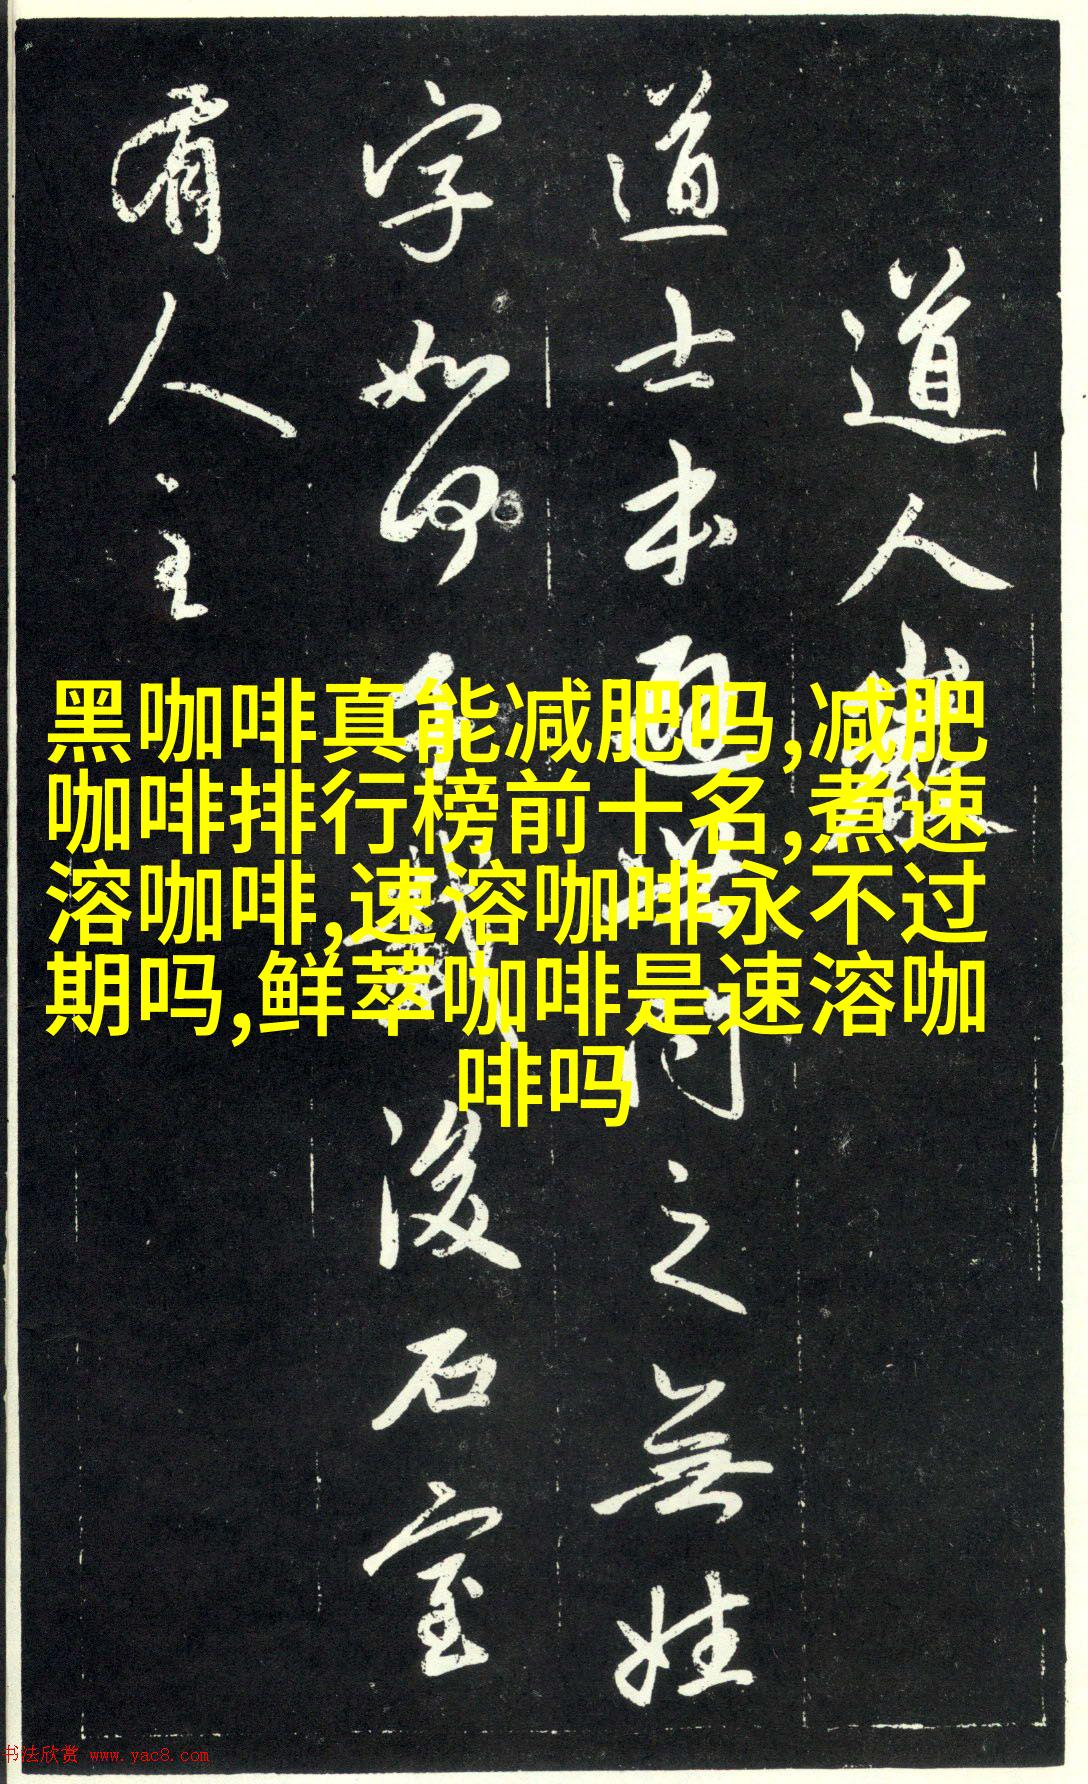 道人劝
道士本避世门之無姓
字如何千載後石室
有人主
黑咖啡真能减肥吗,减肥
咖啡排行榜前十名,煮速
溶咖啡,速溶咖啡永不过
期吗,鲜萃咖啡是速溶咖
啡吗
书法欣赏 www.yac8.com